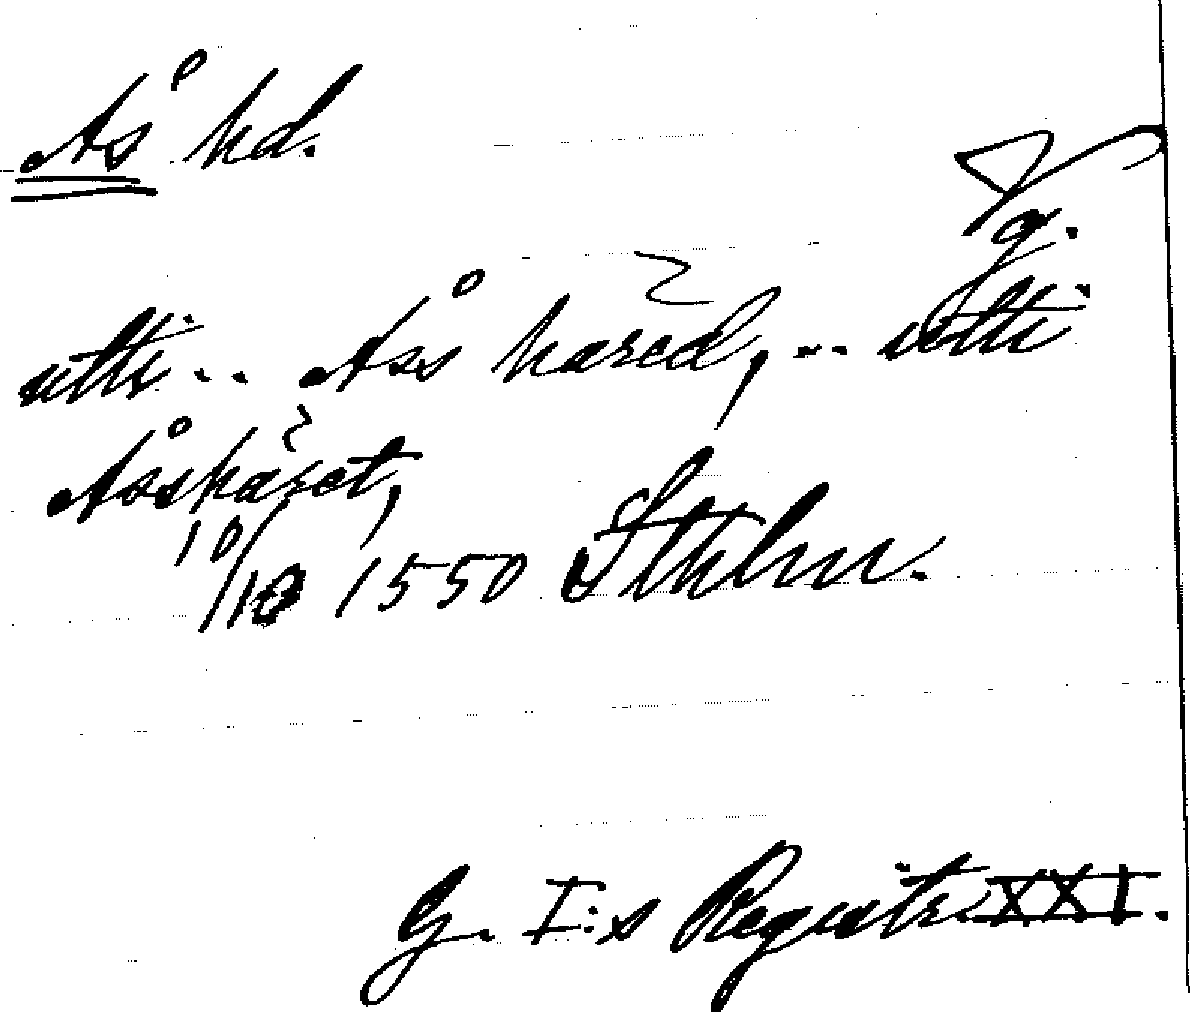 Ås hd.
Vg.
utti... Åss häred,... utti
Åsshäret,
10/10 1550 Sthlm.
G. I:s Registr. XXI.